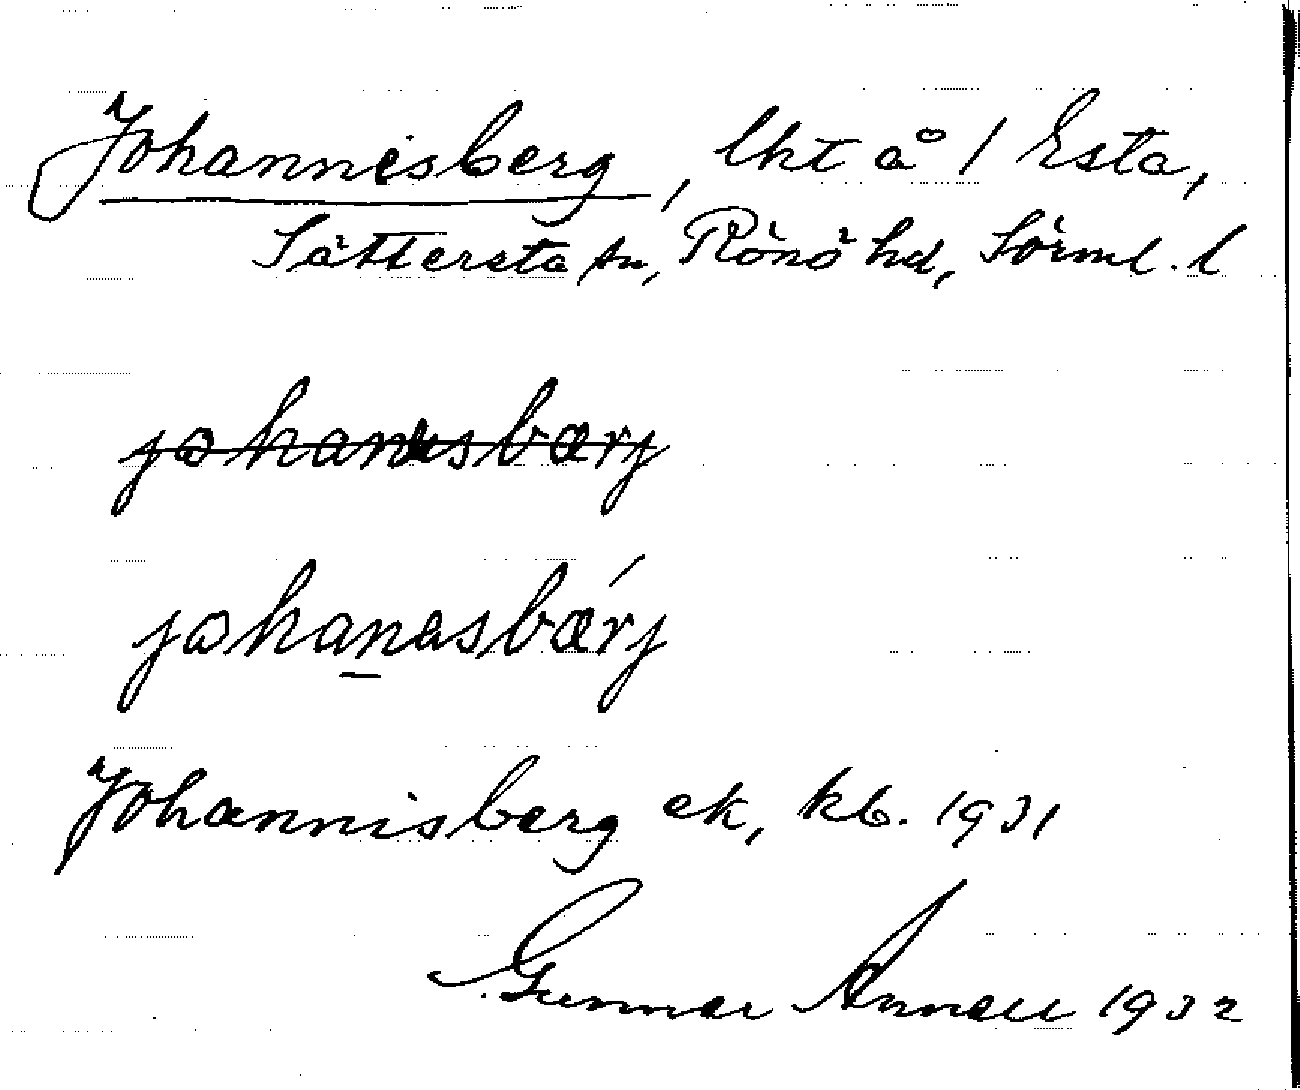 Johannisberg, lht å 1 Esta,
Sättersta sn, Rönö hd, Sörml. l
johannsbærj
johanasbǽrj
Johannisberg ek, kb. 1931
Gunnar Annell 1932